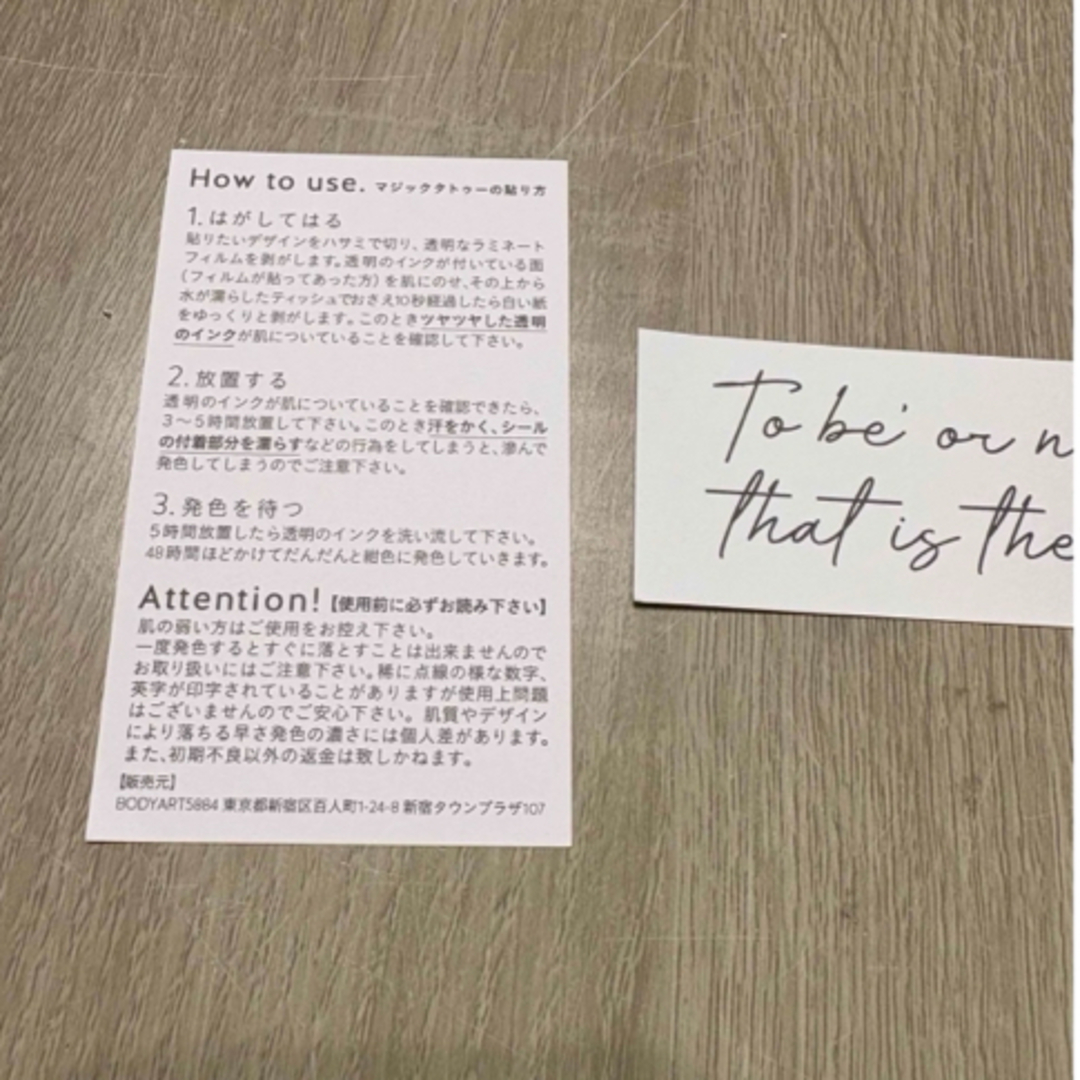 How to use. マジックタトゥーの貼り方
1. はがしてはる
貼りたいデザインをハサミで切り、透明なラミネート
フィルムを剥がします。透明のインクが付いている面
（フィルムが貼ってあった方）を肌にのせ、その上から
水が濡らしたティッシュでおさえ10秒経過したら白い紙
をゆっくりと剥がします。このときツヤツヤした透明
のインクが肌についていることを確認して下さい。
2. 放置する
透明のインクが肌についていることを確認できたら、
3～5時間放置して下さい。このとき汗をかく、シール
の付着部分を濡らすなどの行為をしてしまうと、滲んで
発色してしまうのでご注意下さい。
3. 発色を待つ
5時間放置したら透明のインクを洗い流して下さい。
48時間ほどかけてだんだんと紺色に発色していきます。
Attention! 【使用前に必ずお読み下さい】
肌の弱い方はご使用をお控え下さい。
一度発色するとすぐに落とすことは出来ませんので
お取り扱いにはご注意下さい。稀に点線の様な数字、
英字が印字されていることがありますが使用上問題
はございませんのでご安心下さい。肌質やデザイン
により落ちる早さ発色の濃さには個人差があります。
また、初期不良以外の返金は致しかねます。
【販売元】
BODYART5884 東京都新宿区百人町1-24-8 新宿タウンプラザ107
To be or n
that is the